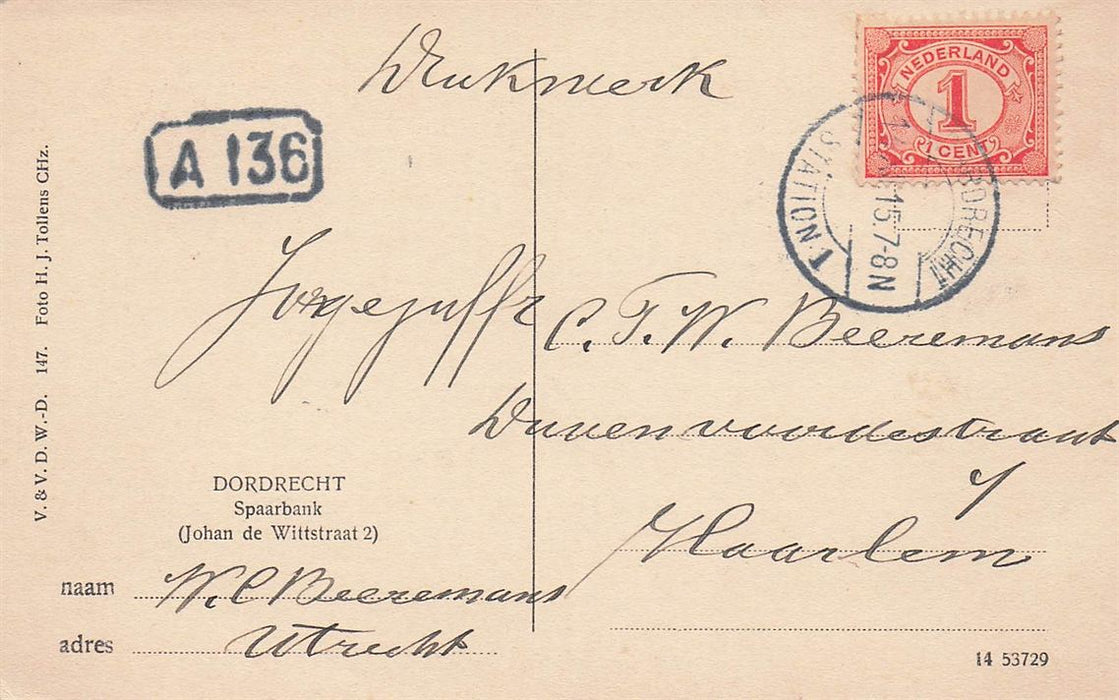 Drukwerk
NEDERLAND
1
1 CENT
A 136
DORDRECHT
STATION.1
15.7-8N
Jongejuffr C. F. W. Beeremans
Duvenvoordestraat
7
Haarlem
V. & V. D. W.-D. 147. Foto H. J. Tollens CHz.
DORDRECHT
Spaarbank
(Johan de Wittstraat 2)
naam W. C Beeremans
adres Utrecht
14 53729